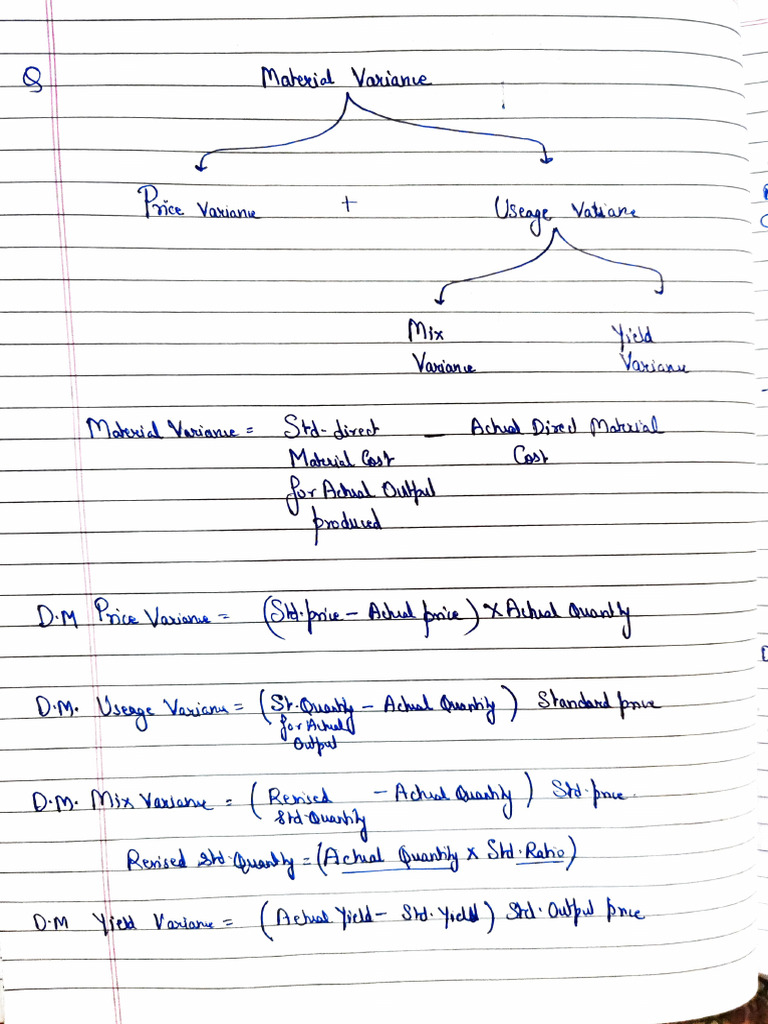 Q Material Variance
Price Variance + Useage Variane
Mix Yield
Variance Variance
Material Variance = Std-direct - Actual Direct Material
Material Cost Cost
for Actual Output
produced
D.M Price Variance = (Std.price - Actual price) × Actual Quantity
D.M. Useage Variance = (St.Quantity - Actual Quantity) Standard price
for Actual
Output
D.M. Mix Variance = (Revised - Actual Quantity) Std.price.
Std.Quantity
Revised Std.Quantity = (Actual Quantity × Std.Ratio)
D.M Yield Variance = (Actual Yield - Std.Yield) Std.Output price